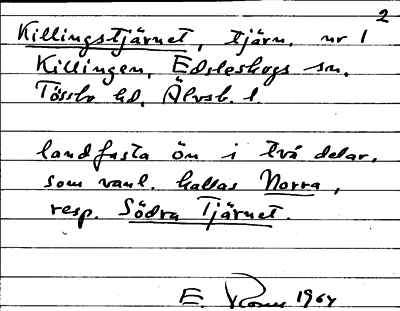 2
Killingstjärnet, tjärn, nr 1
Killingen, Edsleskogs sn,
Tössbo hd, Älvsb. l.
landfasta ön i två delar,
som vanl. kallas Norra,
resp. Södra Tjärnet.
E. 1964